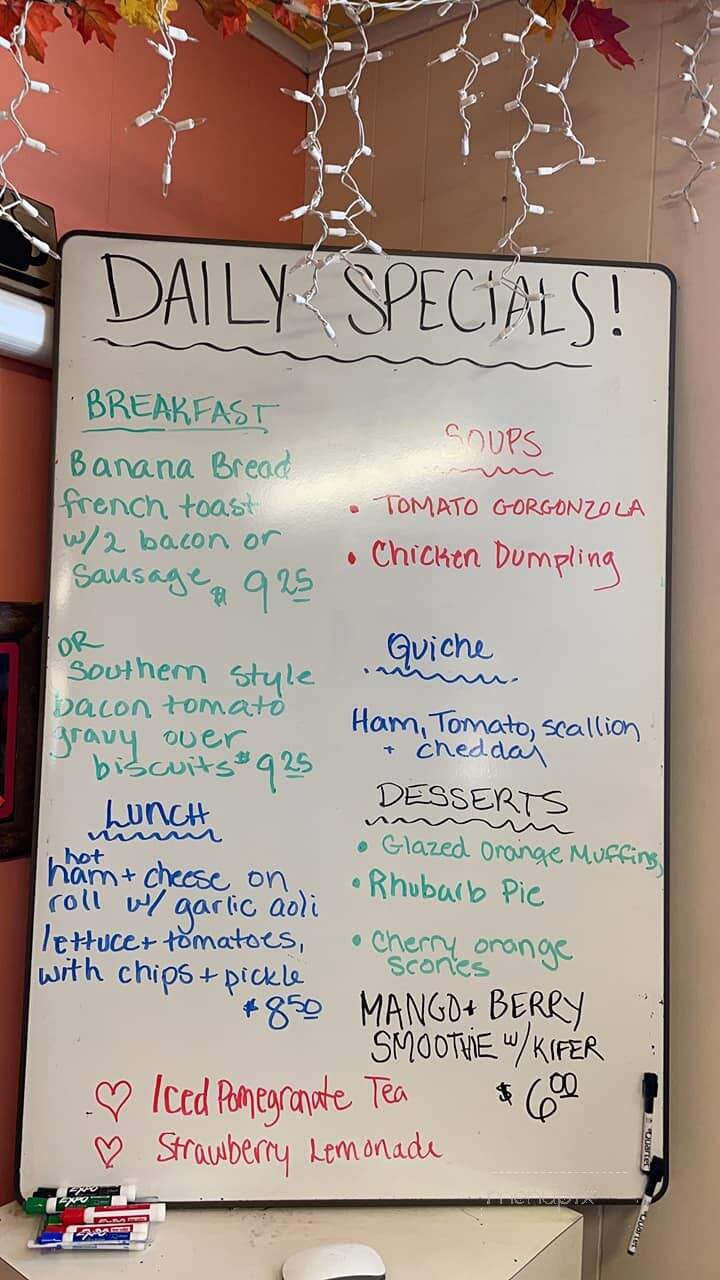 DAILY SPECIALS!
BREAKFAST
Banana Bread
french toast
w/2 bacon or
Sausage $ 9 25
OR
Southern Style
bacon tomato
gravy over
biscuits $9 25
LUNCH
hot
ham + cheese on
roll w/ garlic aoli
lettuce + tomatoes,
with chips + pickle
$8 50
SOUPS
• TOMATO GORGONZOLA
• Chicken Dumpling
Quiche
Ham, Tomato, scallion
+ cheddar
DESSERTS
• Glazed Orange Muffins,
• Rhubarb Pie
• Cherry orange
scones
MANGO + BERRY
SMOOTHIE w/ KIFER
$ 6 00
♡ Iced Pomegranate Tea
♡ Strawberry Lemonade